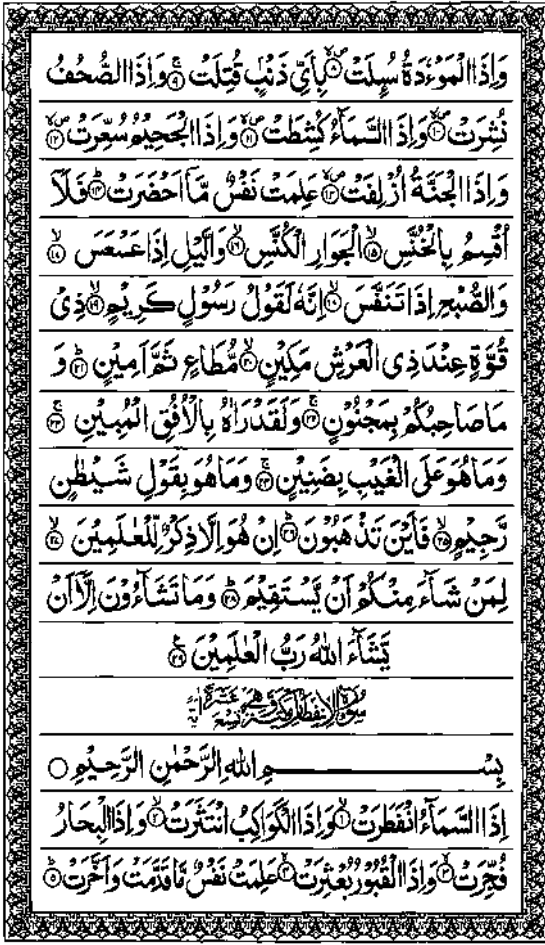 وَاِذَا الْمَوْءٗدَةُ سُىِٕلَتْ ۪ۙ‏﴿۸﴾ بِاَىِّ ذَنْۢبٍ قُتِلَتْ ۚ‏﴿۹﴾ وَاِذَا الصُّحُفُ
نُشِرَتْ ۪ۙ‏﴿۱۰﴾ وَاِذَا السَّمَآءُ كُشِطَتْ ۪ۙ‏﴿۱۱﴾ وَاِذَا الْجَحِيْمُ سُعِّرَتْ ۪ۙ‏﴿۱۲﴾
وَاِذَا الْجَنَّةُ اُزْلِفَتْ ۪ۙ‏﴿۱۳﴾ عَلِمَتْ نَفْسٌ مَّاۤ اَحْضَرَتْ ؕ‏﴿۱۴﴾ فَلَاۤ
اُقْسِمُ بِالْخُنَّسِ ۙ‏﴿۱۵﴾ الْجَوَارِ الْكُنَّسِ ۙ‏﴿۱۶﴾ وَالَّيْلِ اِذَا عَسْعَسَ ۙ‏﴿۱۷﴾
وَالصُّبْحِ اِذَا تَنَفَّسَ ۙ‏﴿۱۸﴾ اِنَّهٗ لَقَوْلُ رَسُوْلٍ كَرِيْمٍ ۙ‏﴿۱۹﴾ ذِىْ
قُوَّةٍ عِنْدَ ذِى الْعَرْشِ مَكِيْنٍ ۙ‏﴿۲۰﴾ مُّطَاعٍ ثَمَّ اَمِيْنٍ ؕ‏﴿۲۱﴾ وَ
مَا صَاحِبُكُمْ بِمَجْنُوْنٍ ۚ‏﴿۲۲﴾ وَلَقَدْ رَاٰهُ بِالْاُفُقِ الْمُبِيْنِ ۚ‏﴿۲۳﴾
وَمَا هُوَ عَلَى الْغَيْبِ بِضَنِيْنٍ ۚ‏﴿۲۴﴾ وَمَا هُوَ بِقَوْلِ شَيْطٰنٍ
رَّجِيْمٍ ۙ‏﴿۲۵﴾ فَاَيْنَ تَذْهَبُوْنَ ؕ‏﴿۲۶﴾ اِنْ هُوَ اِلَّا ذِكْرٌ لِّلْعٰلَمِيْنَ ۙ‏﴿۲۷﴾
لِمَنْ شَآءَ مِنْكُمْ اَنْ يَّسْتَقِيْمَ ؕ‏﴿۲۸﴾ وَمَا تَشَآءُوْنَ اِلَّاۤ اَنْ
يَّشَآءَ اللّٰهُ رَبُّ الْعٰلَمِيْنَ‏ ﴿۲۹﴾
سُوْرَةُ الْاِنْفِطَارِ مَكِّيَّةٌ وَّهِىَ تِسْعَ عَشَرَةَ اٰيَةً
بِسْمِ اللّٰهِ الرَّحْمٰنِ الرَّحِيْمِ ۝
اِذَا السَّمَآءُ انْفَطَرَتْ ۙ‏﴿۱﴾ وَاِذَا الْكَوَاكِبُ انْتَثَرَتْ ۙ‏﴿۲﴾ وَاِذَا الْبِحَارُ
فُجِّرَتْ ۙ‏﴿۳﴾ وَاِذَا الْقُبُوْرُ بُعْثِرَتْ ۙ‏﴿۴﴾ عَلِمَتْ نَفْسٌ مَّا قَدَّمَتْ وَاَخَّرَتْ ؕ‏﴿۵﴾